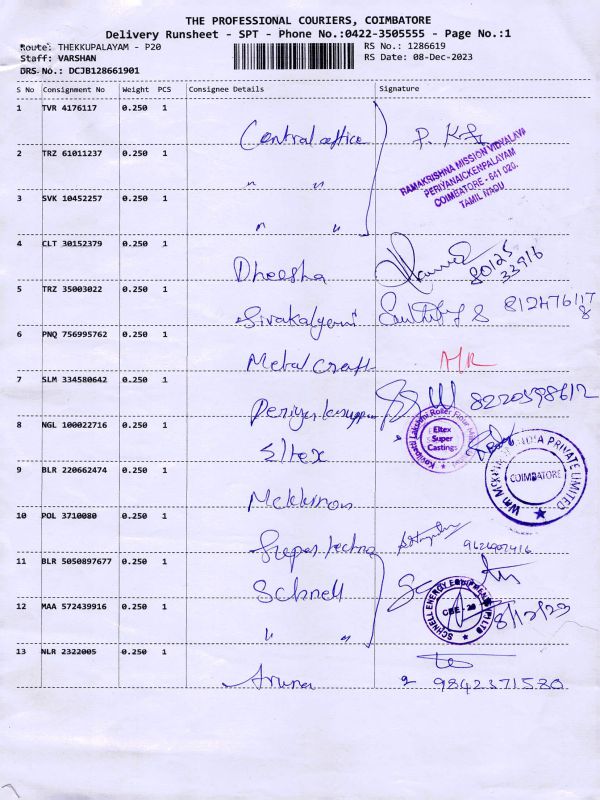 THE PROFESSIONAL COURIERS, COIMBATORE
Delivery Runsheet - SPT - Phone No.:0422-3505555 - Page No.:1
Route: THEKKUPALAYAM - P20
RS No.: 1286619
Staff: VARSHAN
RS Date: 08-Dec-2023
DRS No.: DCJB128661901
S No Consignment No Weight PCS Consignee Details Signature
1 TVR 4176117 0.250 1
Central office
2 TRZ 61011237 0.250 1
RAMAKRISHNA MISSION VIDYALAYA
PERIYANAICKENPALAYAM
COIMBATORE - 641 020.
TAMIL NADU
" "
3 SVK 10452257 0.250 1
" "
4 CLT 30152379 0.250 1
Dheesha 80125
33916
5 TRZ 35003022 0.250 1
Sivakalyani
6 PNQ 756995762 0.250 1
Metal Craft A/R
7 SLM 334580642 0.250 1
8220598612
8 NGL 100022716 0.250 1
Eltex
Eltex
Super
Castings
9 BLR 220662474 0.250 1
INDIA PRIVATE LIMITED
COIMBATORE
10 POL 3710080 0.250 1
11 BLR 5050897677 0.250 1
Schnell
12 MAA 572439916 0.250 1
SCHNELL ENERGY EQUIPMENTS (P) LTD
CBE - 20
8/12/23
" "
13 NLR 2322005 0.250 1
Aruna 9842371580